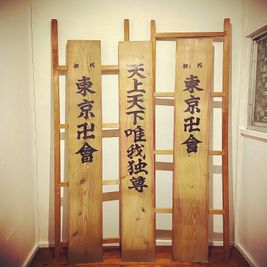 初代
東京卍會
天上天下唯我独尊
初代
東京卍會